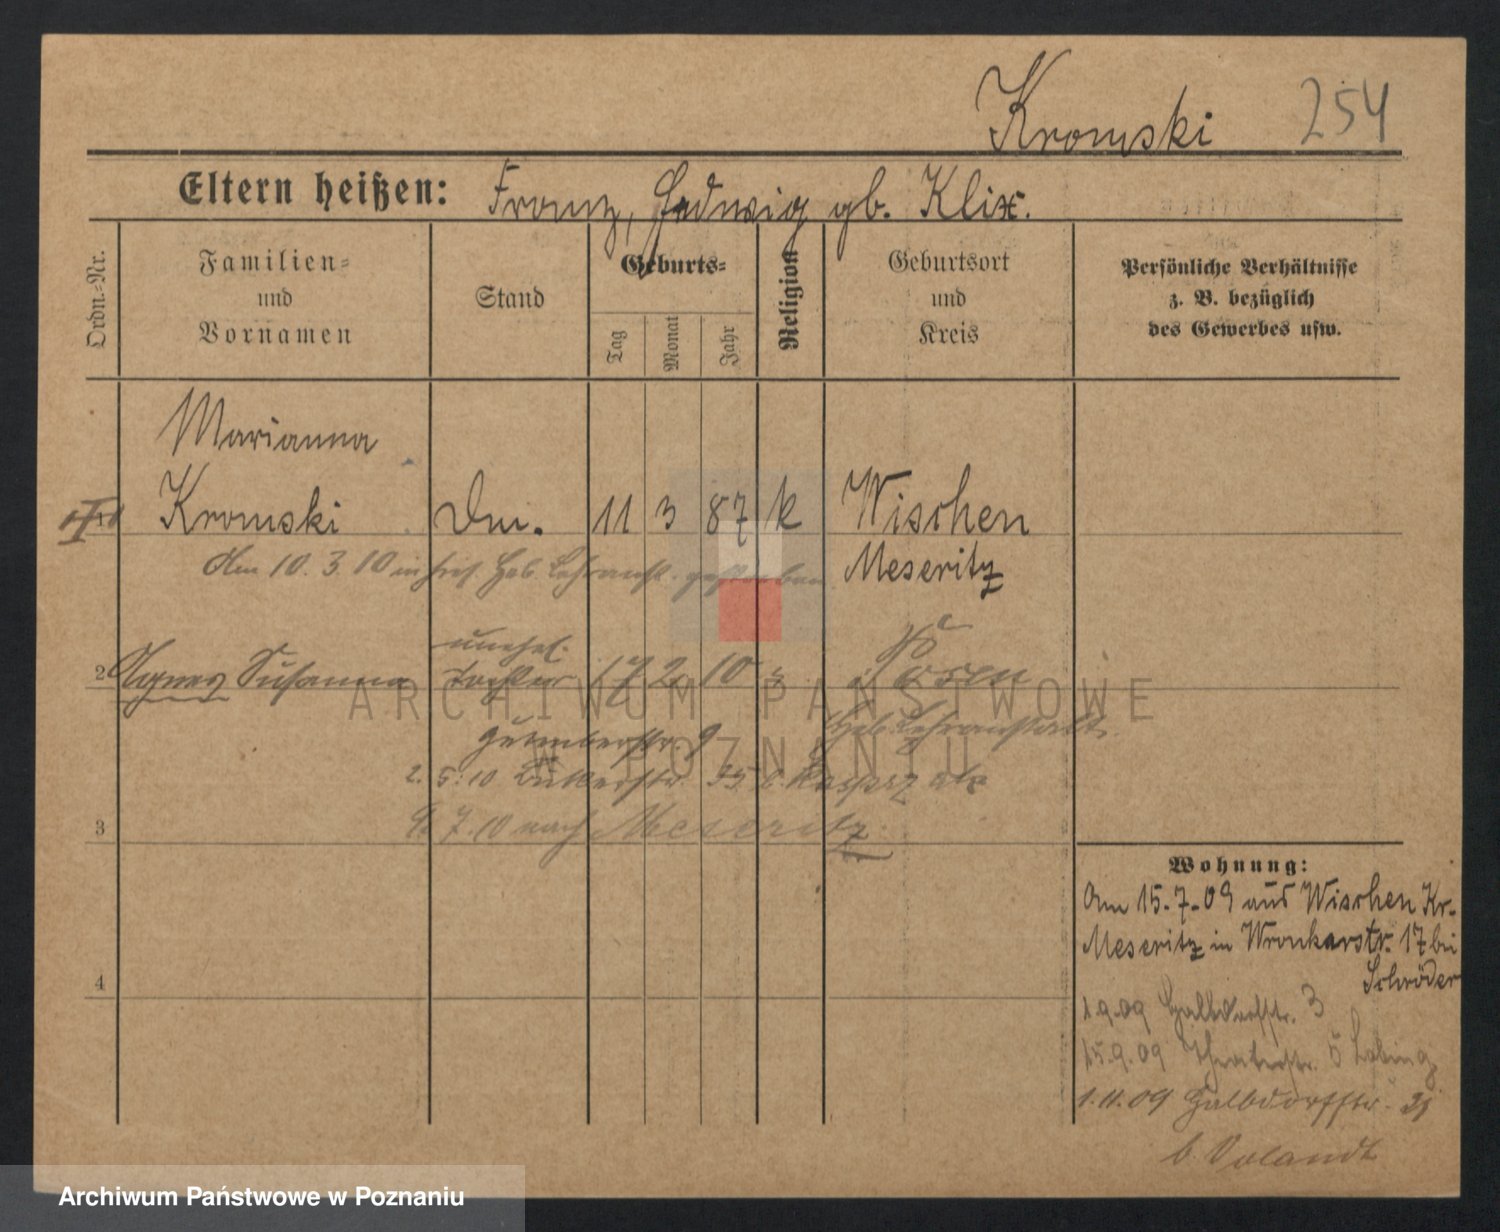 Kromski 254
Eltern heißen: Franz, Hedwig gb. Klix.
Ordn.=Nr.
Familien=
und
Vornamen
Stand
Geburts=
Tag
Monat
Jahr
Religion
Geburtsort
und
Kreis
Persönliche Verhältnisse
z. B. bezüglich
des Gewerbes usw.
Marianna
1 Kromski 11 3 87 k Wischen
Meseritz
Am 10. 3 10 in Heb. Lehranst.
unehel.
2 Agnes Susanna Tochter 17 2 10 Posen
Heb. Lehranstalt.
9
2. 5. 10
3
9. 7. 10 nach Meseritz
4
Wohnung:
Am 15.7.09 aus Wischen Kr.
Meseritz in Wronkerstr. 17 bei
Schröder
1.9.09 Halbdorfstr. 3
15.9.09 Theaterstr. 5
1.11.09 Halbdorfstr.
b. Volandt
ARCHIWUM PAŃSTWOWE
W POZNANIU
Archiwum Państwowe w Poznaniu